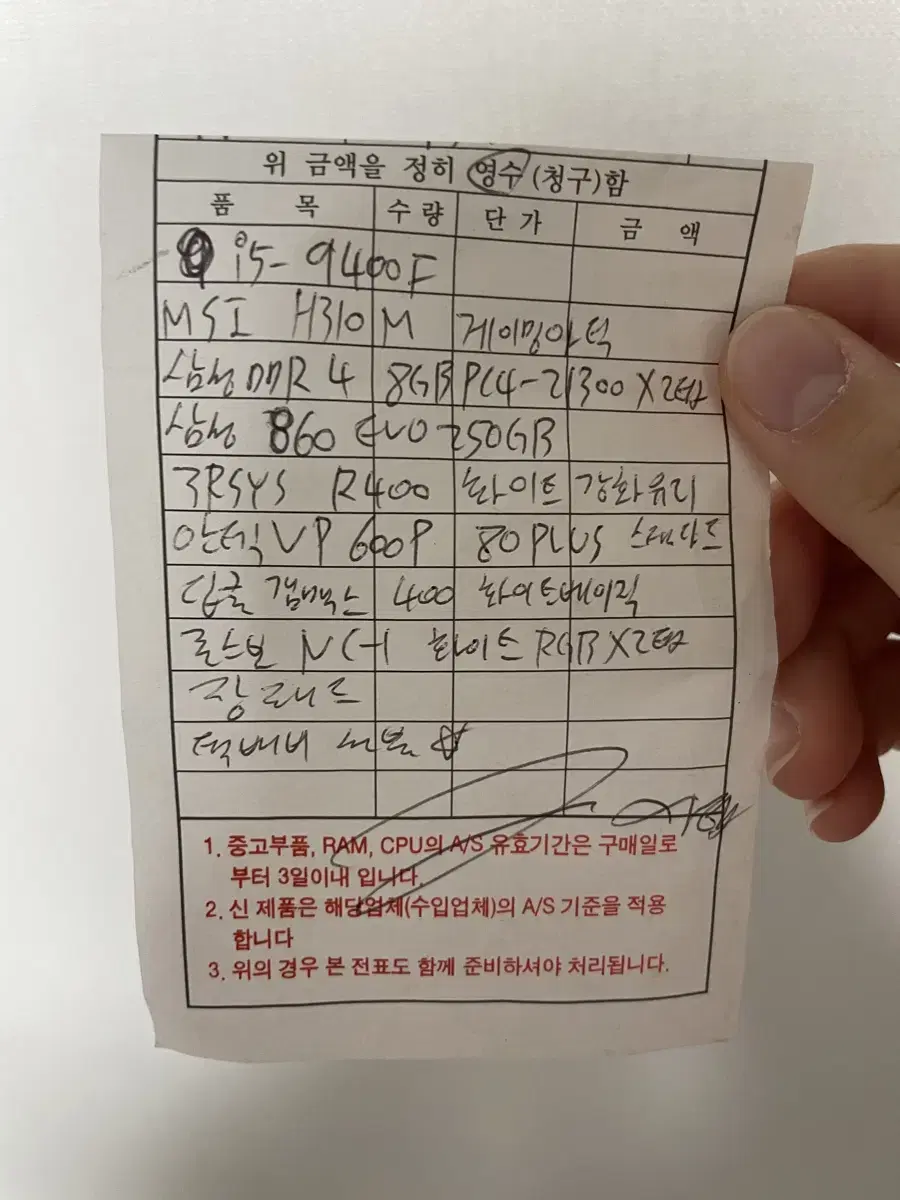 위 금액을 정히 영수 (청구)함
품 목 수 량 단 가 금 액
i5-9400F
MSI H310M 게이밍아틱
삼성 DDR4 8GB PC4-21300 X2
삼성 860 EVO 250GB
3RSYS R400 화이트 강화유리
안텍 VP600P 80PLUS 스탠다드
딥쿨 갬맥스 400 화이트베이직
쿨스보 NC-1 화이트 RGB X2
장패드
택배비
1. 중고부품, RAM, CPU의 A/S 유효기간은 구매일로
부터 3일이내 입니다.
2. 신 제품은 해당업체(수입업체)의 A/S 기준을 적용
합니다
3. 위의 경우 본 전표도 함께 준비하셔야 처리됩니다.